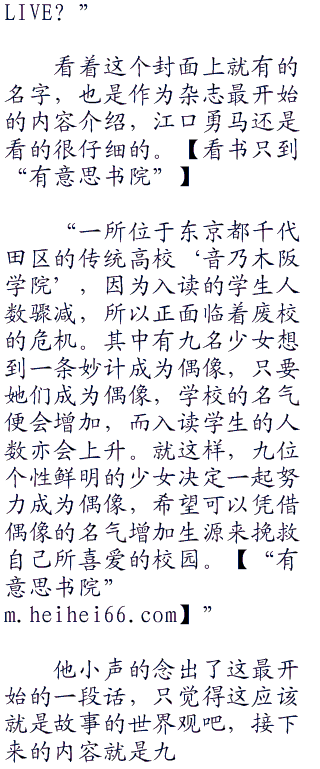 LIVE？”
看着这个封面上就有的
名字，也是作为杂志最开始
的内容介绍，江口勇马还是
看的很仔细的。【看书只到
“有意思书院”】
“一所位于东京都千代
田区的传统高校‘音乃木阪
学院’，因为入读的学生人
数骤减，所以正面临着废校
的危机。其中有九名少女想
到一条妙计成为偶像，只要
她们成为偶像，学校的名气
便会增加，而入读学生的人
数亦会上升。就这样，九位
个性鲜明的少女决定一起努
力成为偶像，希望可以凭借
偶像的名气增加生源来挽救
自己所喜爱的校园。【“有
意思书院”
m.heihei66.com】”
他小声的念出了这最开
始的一段话，只觉得这应该
就是故事的世界观吧，接下
来的内容就是九